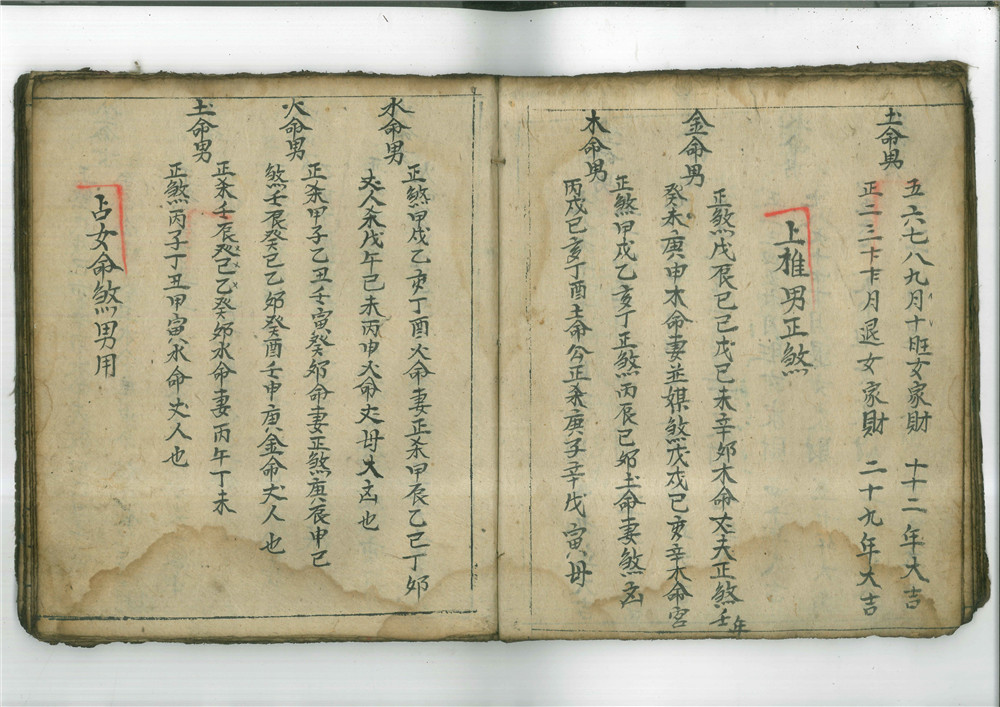 土命男
五六七八九月十旺女家財 十二年大吉
正二三十十月退女家財 二十九年大吉
上推男正煞
金命男
正煞戊辰己巳戊己未辛卯木命丈夫正煞壬年
癸未庚申木命妻並媒煞戊戌己亥辛木命宮
木命男
正煞甲戌乙亥丁正煞丙辰巳卯土命妻煞凶
丙戌己亥丁酉土命公正杀庚子辛戊寅母
水命男
正煞甲戌乙亥丁酉火命妻正杀甲辰乙巳丁卯
丈人杀戊午己未丙申火命丈母大凶也
火命男
正杀甲子乙丑壬寅癸卯命妻正煞庚辰申巳
煞壬辰癸巳乙卯癸酉壬申庚金命丈人也
土命男
正杀壬辰癸巳乙癸卯水命妻丙午丁未
正煞丙子丁丑甲寅水命丈人也
占女命煞男用